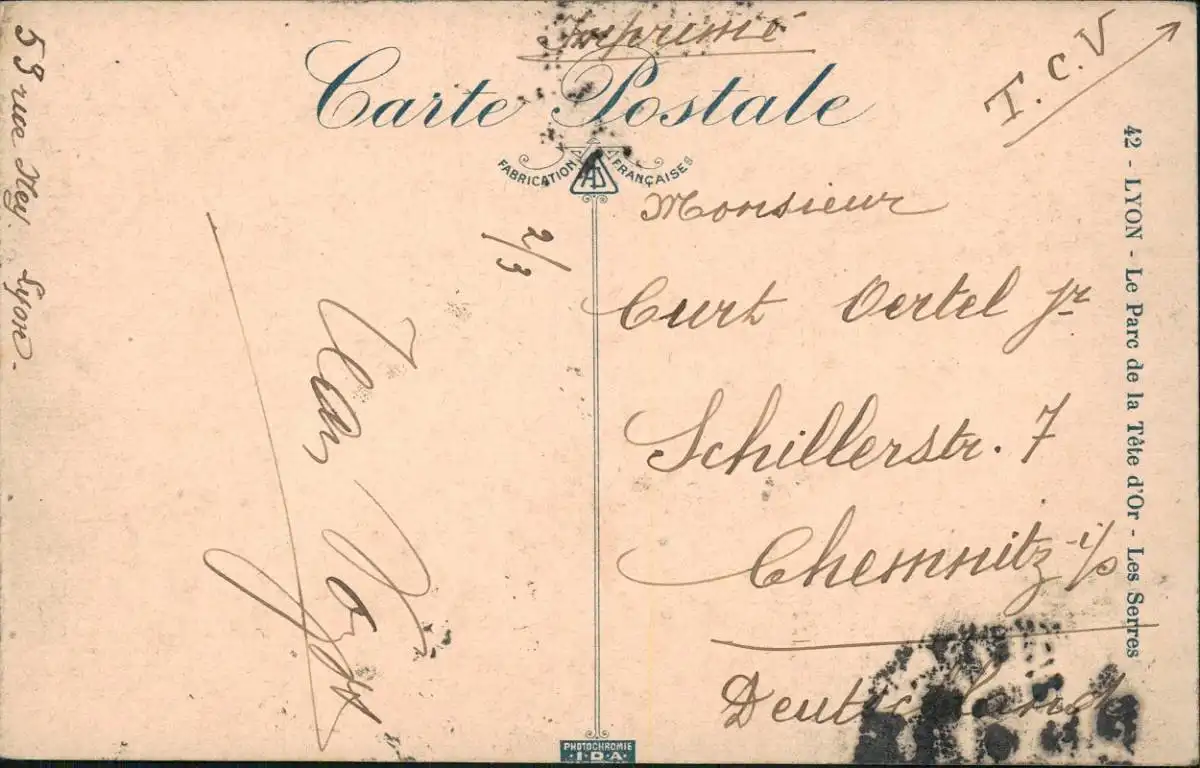 Imprimé
T.C.V
Carte Postale
FABRICATION FRANÇAISE
53 rue Ney. Lyon.
2/3
Monsieur
Curt Oertel jr
Schillerstr. 7
Chemnitz i/s
Deutschland
42 - LYON - Le Parc de la Tête d'Or - Les Serres
PHOTOCHROMIE
I.D.A